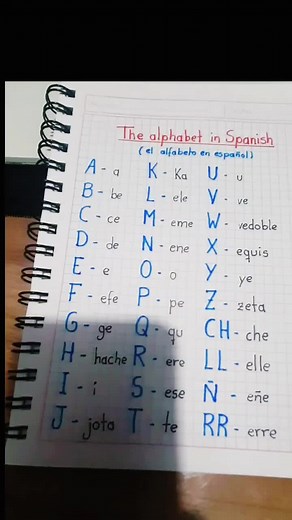 The alphabet in Spanish
(el alfabeto en español)
A - a K - Ka U - u
B - be L - ele V - ve
C - ce M - eme W - vedoble
D - de N - ene X - equis
E - e O - o Y - ye
F - efe P - pe Z - zeta
G - ge Q - qu CH - che
H - hache R - ere LL - elle
I - i S - ese Ñ - eñe
J - jota T - te RR - erre